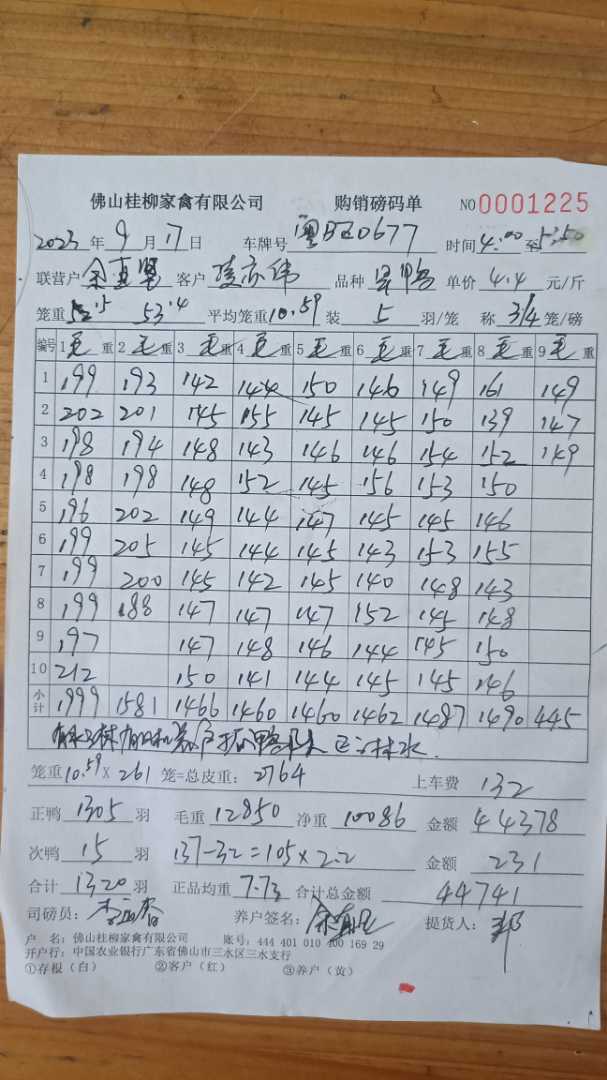 佛山桂柳家禽有限公司 购销磅码单 NO 0001225
2023 年 9 月 17 日 车牌号 粤 0677 时间 4:00 至 5:50
联营户 余 客户 凌亦伟 品种 单价 4.4 元/斤
笼重 53.4 平均笼重 10.59 装 5 羽/笼 称 3/4 笼/磅
编号 1 毛 重 2 毛 重 3 毛 重 4 毛 重 5 毛 重 6 毛 重 7 毛 重 8 毛 重 9 毛 重
1 199 193 142 144 150 146 149 161 149
2 202 201 145 155 145 145 150 139 147
3 198 194 148 143 146 146 154 152 149
4 198 198 148 152 145 156 153 150
5 196 202 149 144 147 145 145 146
6 199 205 145 144 145 143 153 155
7 199 200 145 142 145 140 148 143
8 199 188 147 147 147 152 145 148
9 197 147 148 146 144 145 150
10 212 150 141 144 145 145 146
小计 1999 1581 1466 1460 1460 1462 1487 1490 445
笼重 10.59 X 261 笼=总皮重: 2764 上车费 132
正鸭 1305 羽 毛重 12850 净重 10086 金额 44378
次鸭 15 羽 137-32=105×2.2 金额 231
合计 1320 羽 正品均重 7.73 合计总金额 44741
司磅员: 养户签名: 提货人:
户 名: 佛山桂柳家禽有限公司 账号: 444 401 010 400 169 29
开户行: 中国农业银行广东省佛山市三水区三水支行
①存根(白) ②客户(红) ③养户(黄)